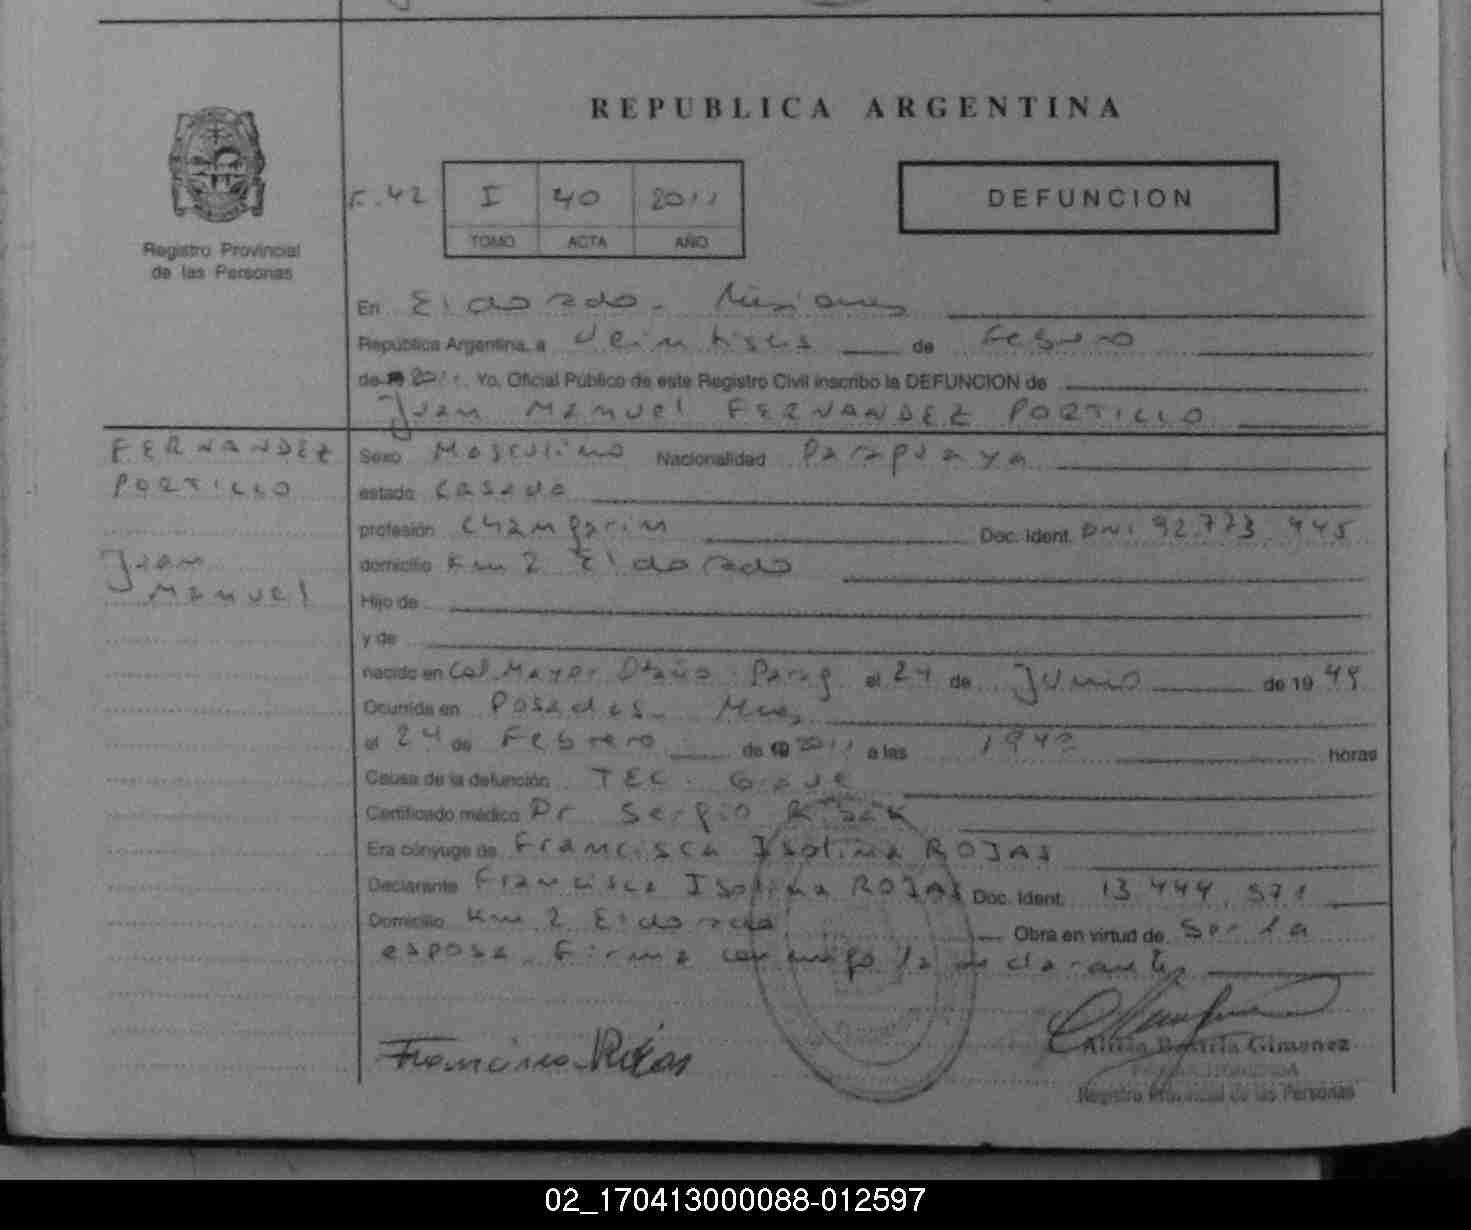 REPUBLICA ARGENTINA
F. 42 I 40 2011
TOMO ACTA AÑO
DEFUNCION
Registro Provincial
de las Personas
En Eldorado - Misiones
República Argentina, a veintiseis de Febrero
de 2011. Yo, Oficial Público de este Registro Civil inscribo la DEFUNCION de
Juan Manuel FERNANDEZ PORTILLO
FERNANDEZ
PORTILLO
Juan
Manuel
Sexo Masculino Nacionalidad Paraguaya
estado casado
profesión Changarin Doc. Ident. DNI 92.773.945
domicilio Km 2 Eldorado
Hijo de
y de
nacido en Cal. Mayor Otaño - Parag el 24 de Junio de 19 49
Ocurrida en Posadas - Mnes
el 24 de Febrero de 2011 a las horas
Causa de la defunción TEC. Grave
Certificado médico Dr Sergio
Era cónyuge de Francisca Isolina ROJAS
Declarante Francisca Isolina ROJAS Doc. Ident. 13.444.571
Domicilio Km 2 Eldorado Obra en virtud de Ser la
esposa. Firma conmigo la declarante
Francisca Rojas
Gimenez
Registro Provincial de las Personas
02_170413000088-012597